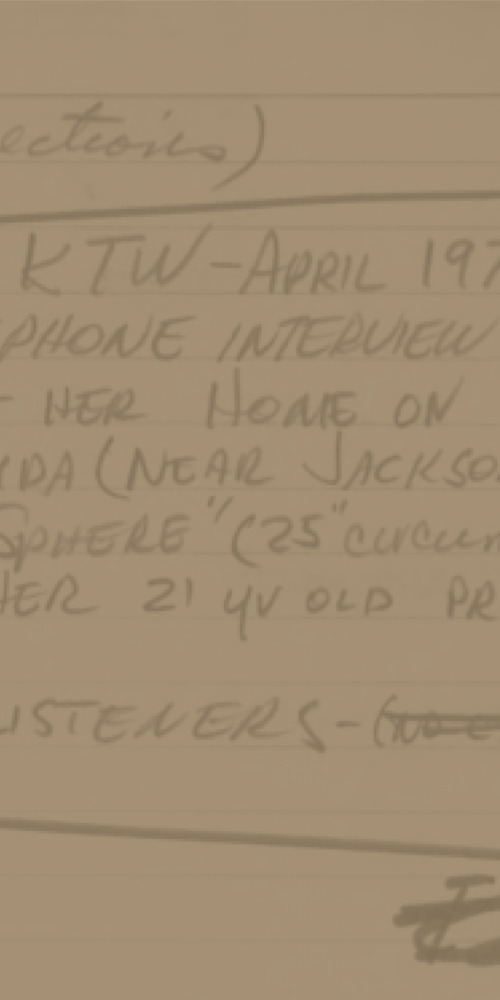 ections)
KTW-APRIL 197
PHONE INTERVIEW
HER HOME ON
IDA (NEAR JACKSO
SPHERE" (25" circum
HER 21 yr OLD PR
LISTENERS-